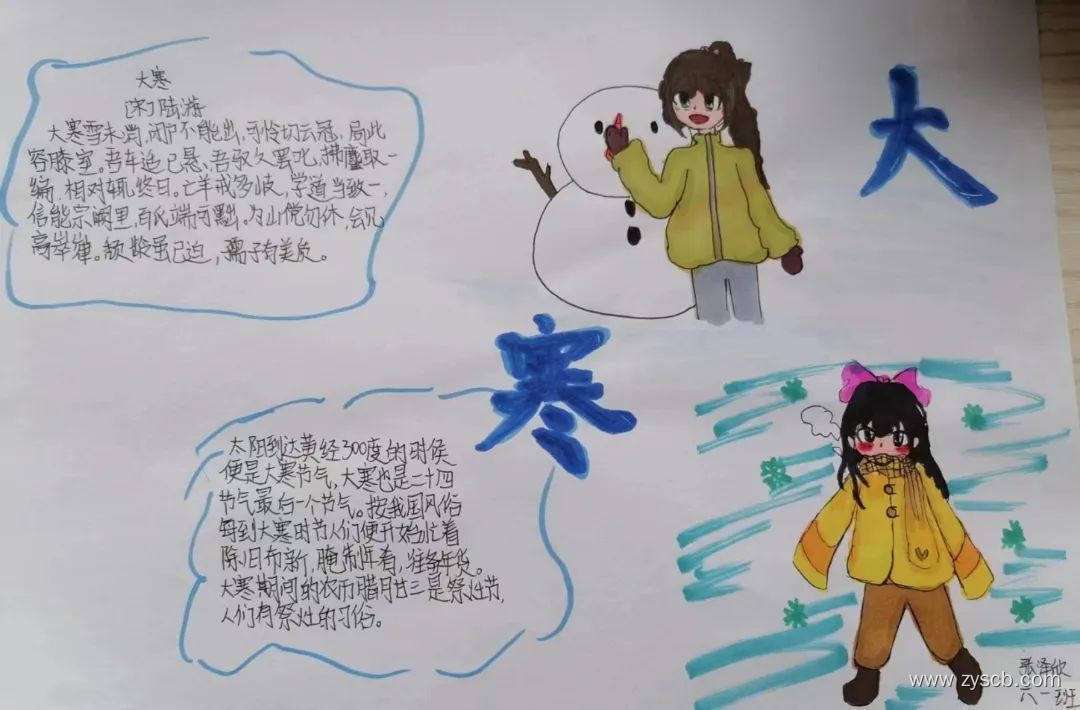 大寒
[宋]陆游
大寒雪未消,闭户不能出,可怜切云冠,局此
容膝室。吾车适已悬,吾驭久罢叱,拂尘取一
编,相对辄终日。亡羊戒多岐,学道当致一,
信能宗阙里,百氏端可黜。为山傥勿休,会见
高崒嵂。颓龄虽已迫,孺子有美质。
大
寒
太阳到达黄经300度的时候
便是大寒节气,大寒也是二十四
节气最后一个节气。按我国风俗
每到大寒时节人们便开始忙着
除旧布新,腌制年肴,准备年货。
大寒期间的农历腊月廿三是祭灶节,
人们有祭灶的习俗。
张泽欣
六一班
www.zyscb.com